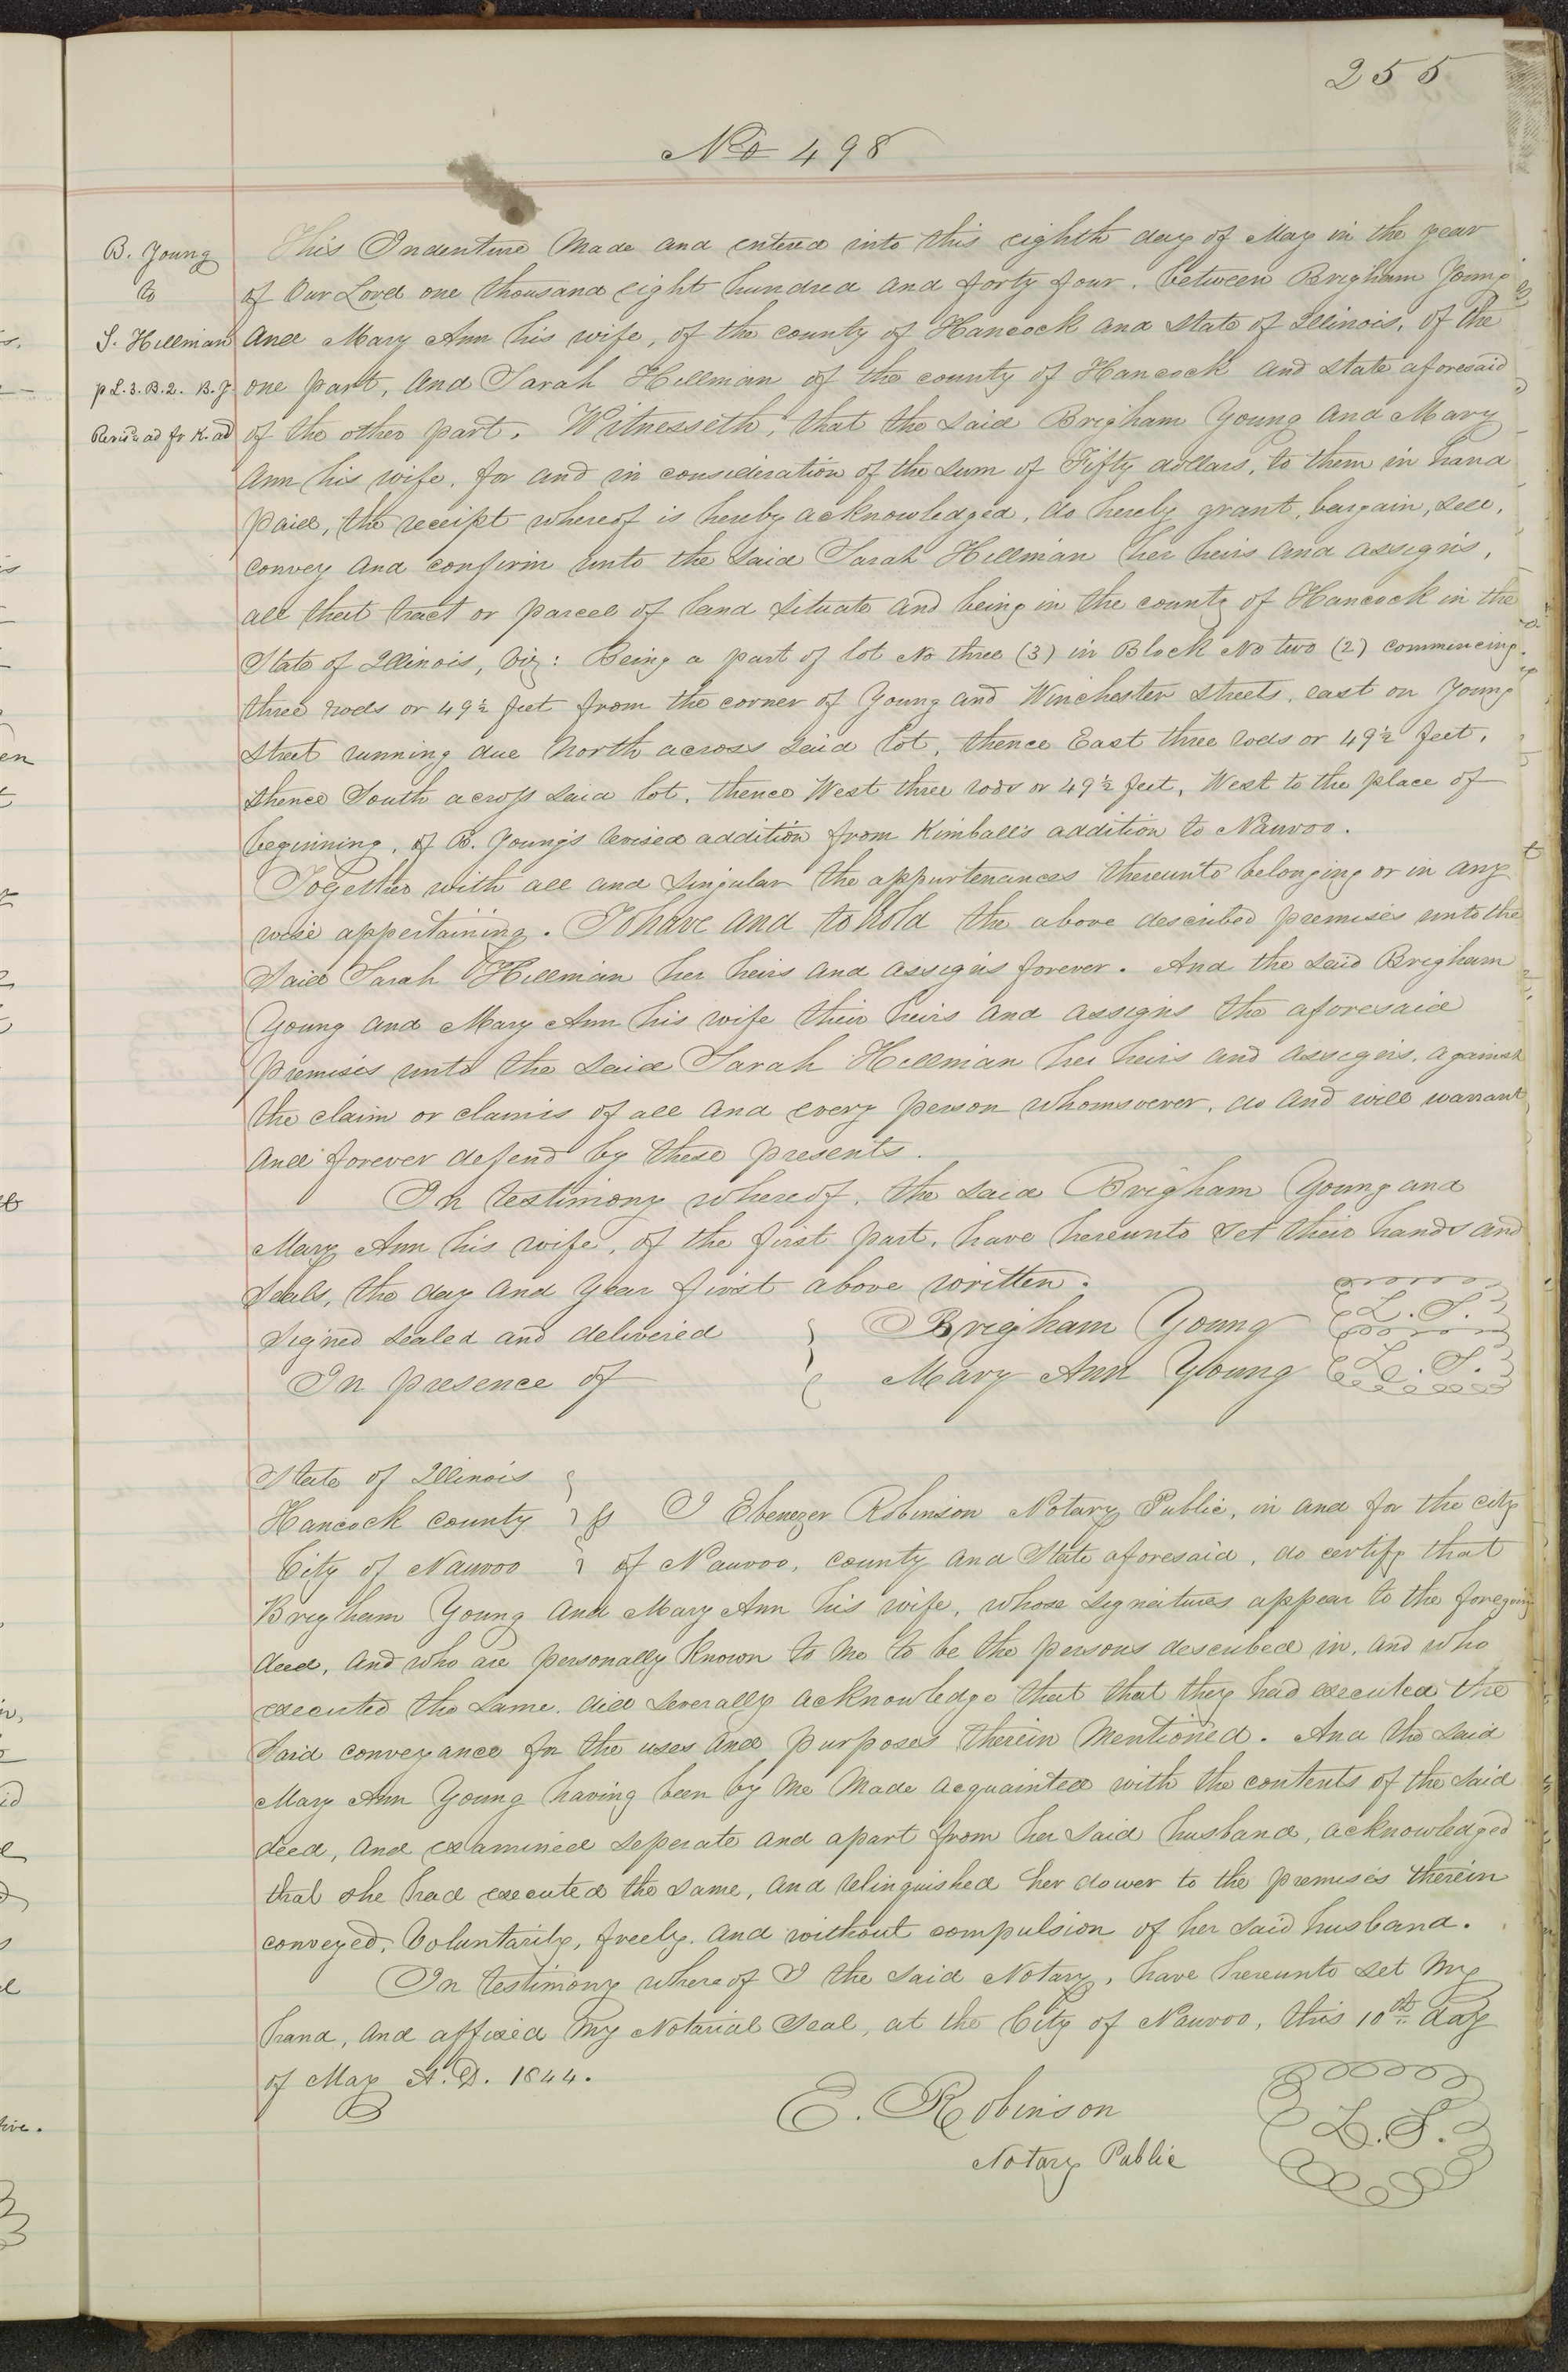 255
No 498
B. Young
to
S. Hillman
p L. 3. B. 2. B. Y
Revisd ad fr K. ad
This Indenture Made and entered into this eighth day of May in the year
of Our Lord one thousand eight hundred and forty four, between Brigham Young
And Mary Ann his wife, of the county of Hancock and State of Illinois, of the
one part, And Sarah Hillman of the county of Hancock and State aforesaid
of the other part. Witnesseth, that the said Brigham Young And Mary
Ann his wife, for and in consideration of the sum of Fifty dollars, to them in hand
paid, the receipt whereof is hereby acknowledged, do hereby grant, bargain, sell,
convey and confirm unto the said Sarah Hillman her heirs and assigns,
all that tract or parcel of land situate and being in the county of Hancock in the
State of Illinois, viz: Being a part of lot No three (3) in Block No two (2) commencing
three rods or 49½ feet from the corner of Young and Winchester streets, east on Young
street running due North across said lot, thence East three rods or 49½ feet,
thence South across said lot, thence West three rods or 49½ feet, West to the place of
beginning, of B. Young's revised addition from Kimball's addition to Nauvoo.
Together with all and singular the appurtenances thereunto belonging or in any
wise appertaining. To have and to hold the above described premises unto the
said Sarah Hillman her heirs and assigns forever. And the said Brigham
Young and Mary Ann his wife their heirs and assigns the aforesaid
premises unto the said Sarah Hillman her heirs and assigns, against
the claim or claims of all and every person whomsoever, do and will warrant
and forever defend by these presents.
In testimony whereof, the said Brigham Young and
Mary Ann his wife, of the first part, have hereunto set their hands and
seals, the day and year first above written.
Signed sealed and delivered } Brigham Young L. S.
In presence of } Mary Ann Young L. S.
State of Illinois }
Hancock county } ss I Ebenezer Robinson Notary Public, in and for the city
City of Nauvoo } of Nauvoo, county and State aforesaid, do certify that
Brigham Young and Mary Ann his wife, whose signatures appear to the foregoing
deed, and who are personally known to me to be the persons described in, and who
executed the same, did severally acknowledge that that they had executed the
said conveyance for the uses and purposes therein mentioned. And the said
Mary Ann Young having been by me made acquainted with the contents of the said
deed, and examined seperate and apart from her said husband, acknowledged
that she had executed the same, and relinquished her dower to the premises therein
conveyed, voluntarily, freely, and without compulsion of her said husband.
In testimony whereof I the said Notary, have hereunto set my
hand, and affixed my Notarial Seal, at the City of Nauvoo, this 10th day
of May A.D. 1844.
E. Robinson
Notary Public
L. S.